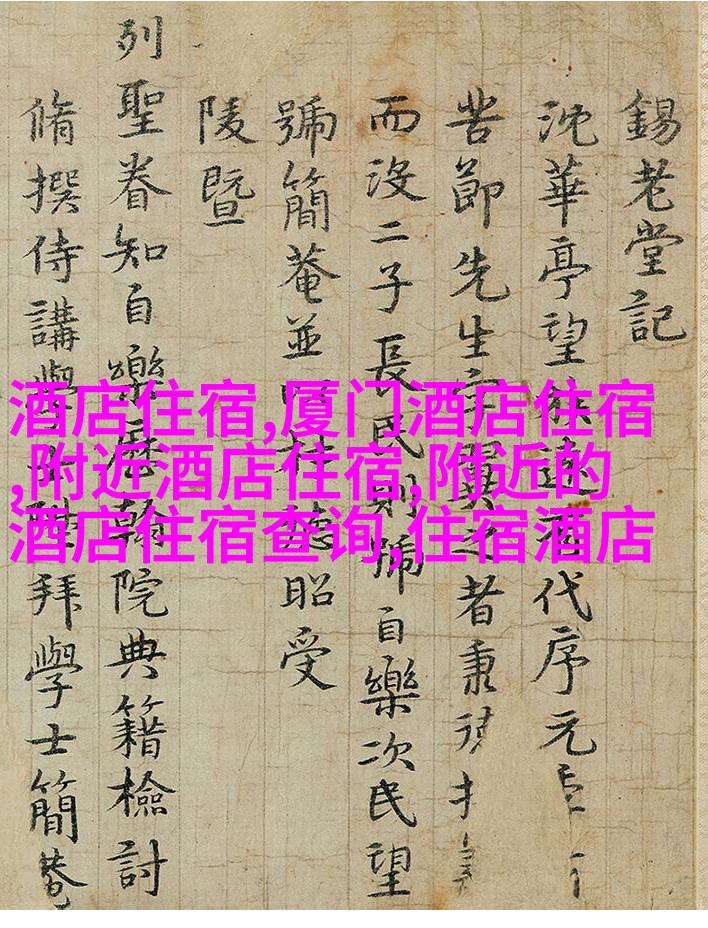 錫老堂記
沈華亭望族逮
代序元
苦節先生字翼之者秉
而沒二子長民則號自樂次民望
號簡菴並
德昭受
陵暨
列聖眷知自樂歷翰院典籍檢討
脩撰侍講學
拜學士簡菴
酒店住宿,厦门酒店住宿
,附近酒店住宿,附近的
酒店住宿查询,住宿酒店